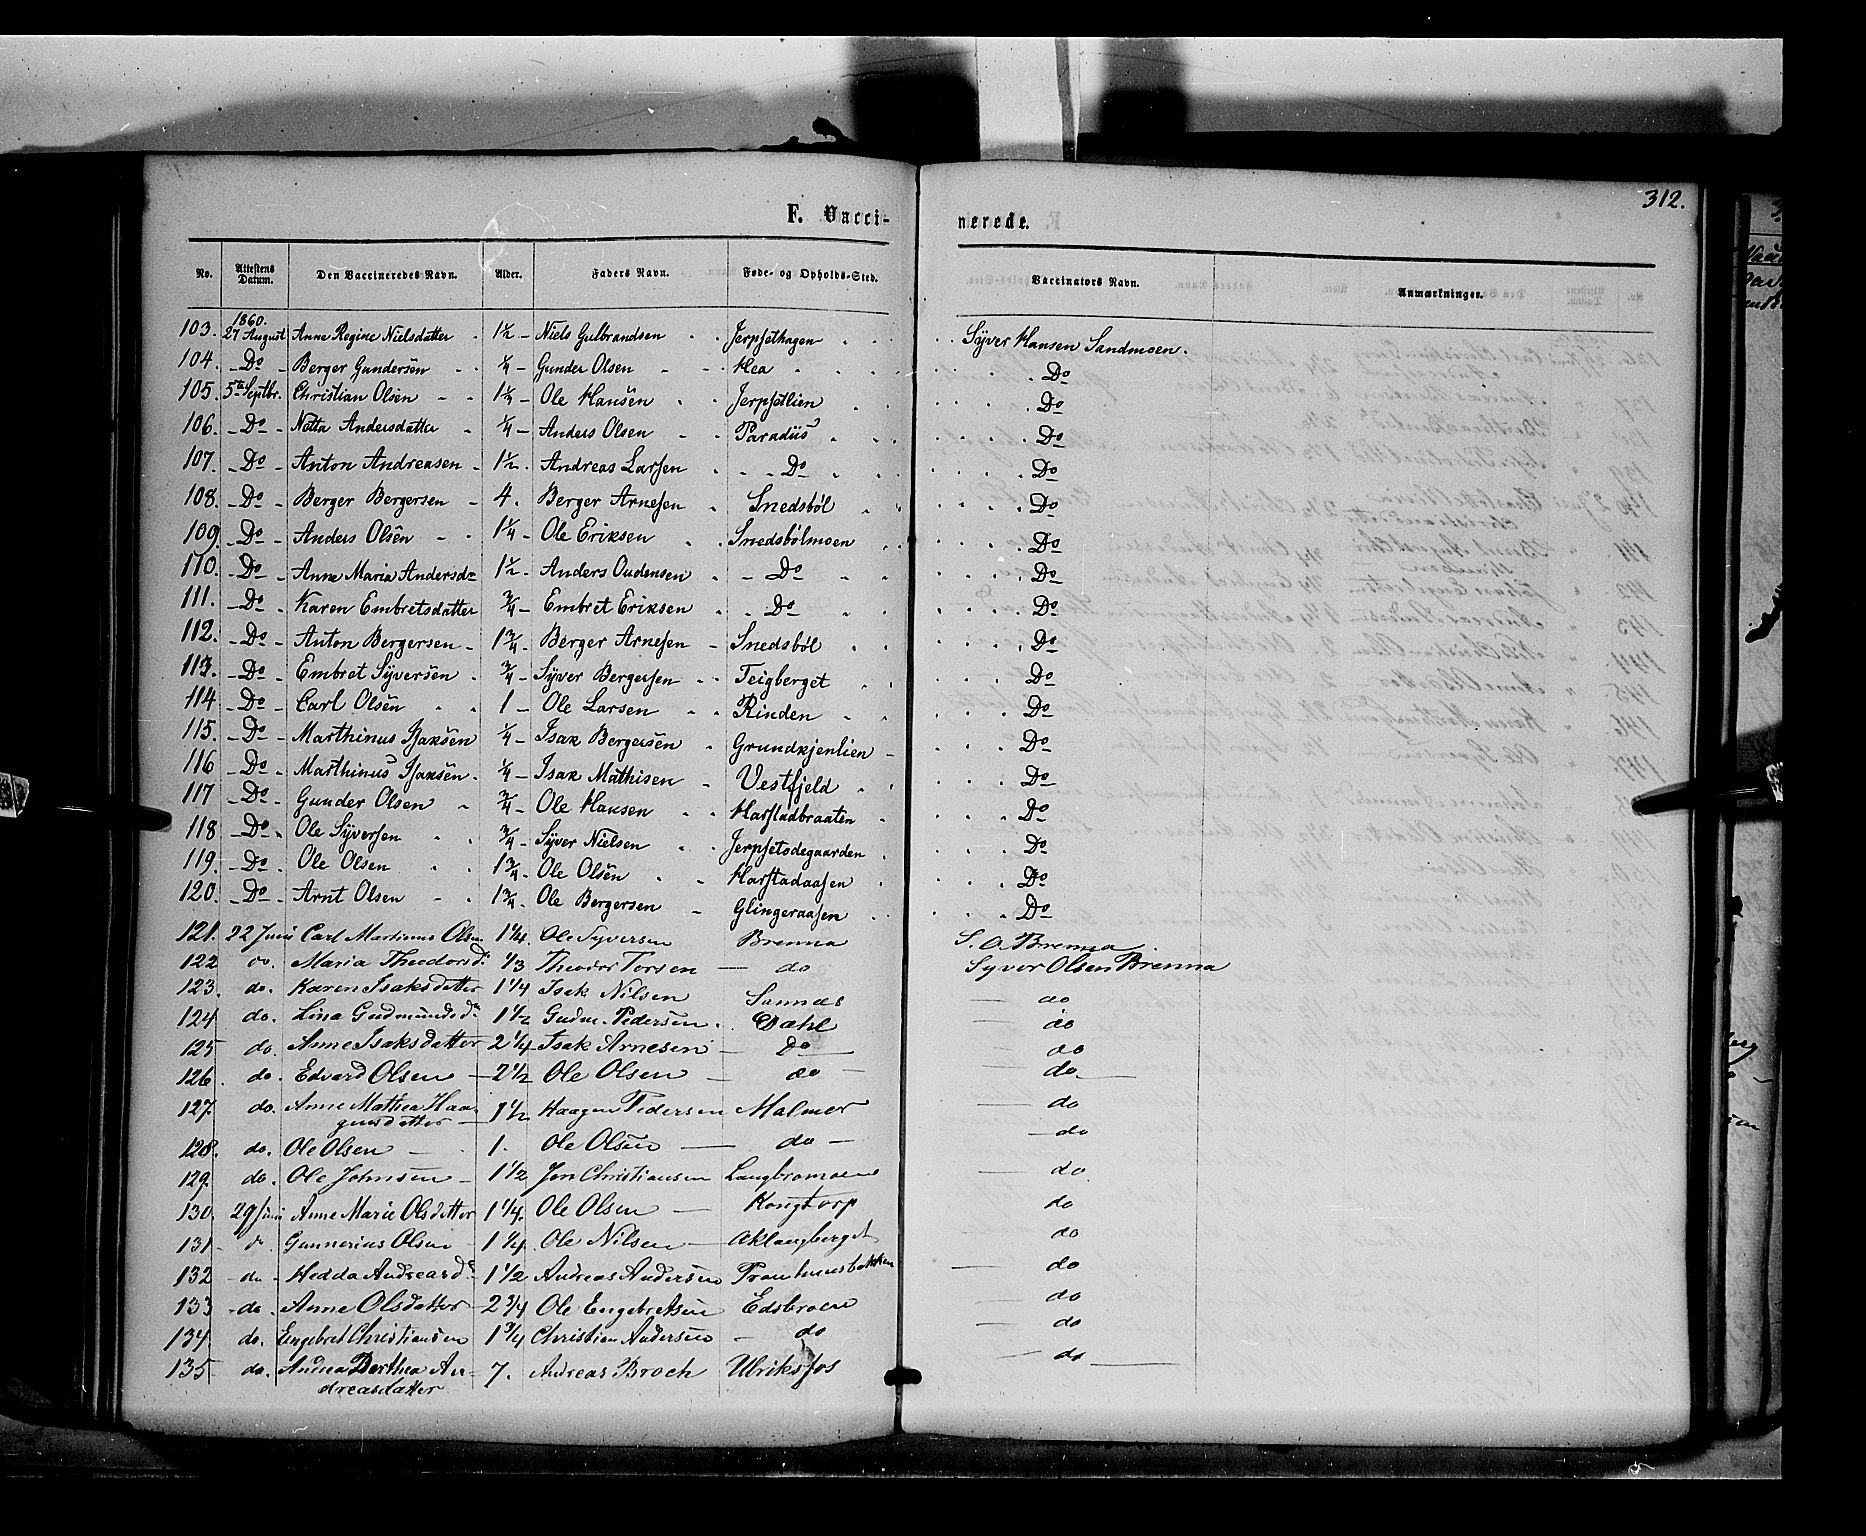 312.
F. Vacci-
nerede.
No. Attestens Datum. Den Vaccineredes Navn. Alder. Faders Navn. Føde- og Opholds-Sted. Vaccinators Navn. Anmærkninger.
1860.
103. 27 August Anne Regine Nielsdatter 1½ Niels Gulbrandsen Jerpsethagen Syver Hansen Sandmoen.
104. Do Berger Gundersen ¼ Gunder Olsen Hea Do
105. 5te Septbr. Christian Olsen 1¼ Ole Hansen Jerpsetlien Do
106. Do Netta Andersdatter ¼ Anders Olsen Paradiis Do
107. Do Anton Andreasen 1½ Andreas Larsen Do Do
108. Do Berger Bergersen 4. Berger Arnesen Snedsbøl Do
109. Do Anders Olsen 1¼ Ole Eriksen Snedsbølmoen Do
110. Do Anne Maria Andersdr 1½ Anders Oudensen Do Do
111. Do Karen Embretsdatter ¾ Embret Eriksen Do Do
112. Do Anton Bergersen 1¾ Berger Arnesen Snedsbøl Do
113. Do Embret Syversen ¾ Syver Bergersen Teigberget Do
114 Do Carl Olsen 1 Ole Larsen Rinden Do
115. Do Marthinus Isaksen ¼ Isak Bergersen Grundkjenlien Do
116 Do Marthinus Isaksen ¼ Isak Mathisen Vestfjeld Do
117 Do Gunder Olsen ¾ Ole Hansen Harstadbraaten Do
118 Do Ole Syversen ¾ Syver Nielsen Jerpsetødegaarden Do
119. Do Ole Olsen 1¾ Ole Olsen Harstadaasen Do
120. Do Arnt Olsen 1¾ Ole Bergersen Glingeraasen Do
121. 22 Juni Carl Martinus Olsen 1¼ Ole Syversen Brenna S. O. Brenna
122 do. Maria Theodorsd. 1/3 Theodor Torsen do Syver Olsen Brenna
123. do. Karen Isaksdatter 1¼ Isak Nilsen Sannæs do
124 do. Lina Gudmundsd. 1½ Gudm. Pedersen Dæhl do
125 do. Anne Isaksdatter 2¼ Isak Arnesen Do do
126. do. Edvard Olsen 2½ Ole Olsen do do
127. do. Anne Mathea Haa-
gensdatter 1½ Haagen Pedersen Malmer do
128. do. Ole Olsen 1. Ole Olsen do do
129. do. Ole Johnsen 1½ Jon Christiansen Langbromoen do
130. 29 Juni Anne Marie Olsdatter 1¼. Ole Olsen Kongtorp do
131 d Gunnerius Olsen 1¼ Ole Nilsen Aklangberget do
132 do Hedda Andreasd. 1½ Andreas Andersen do
133 do. Anne Olsdatter 2¾ Ole Engebretsen Edsbroen do
134. do. Engebret Christiansen 1¾ Christian Andersen do do
135 do. Andrea Berthea An-
dreasdatter 7. Andreas Broch Ulriksfos do